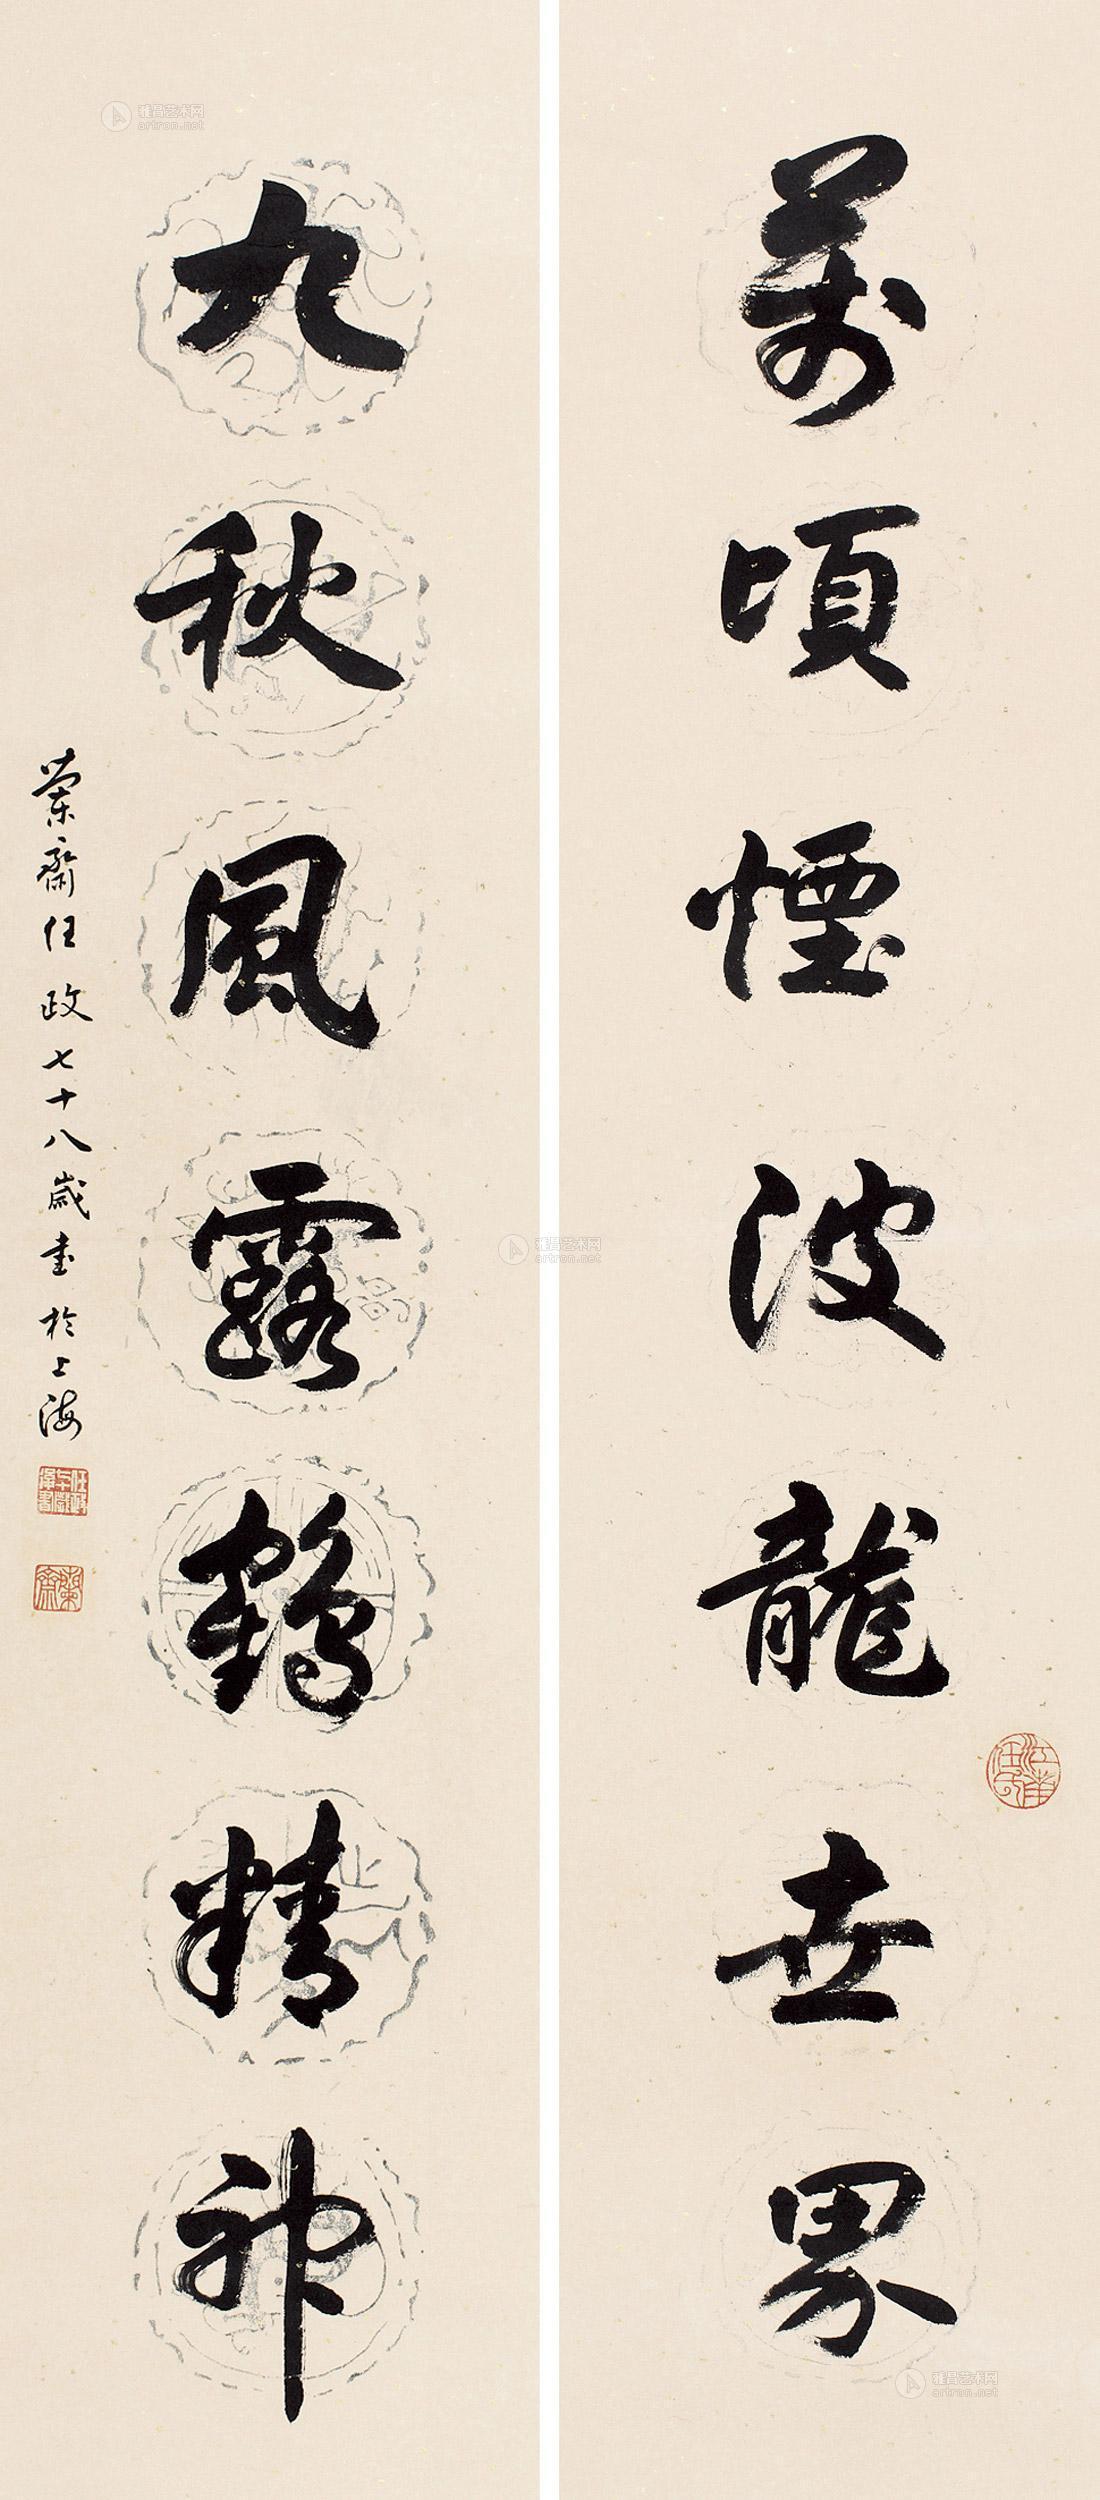 萬頃煙波龍世界
九秋風露鶴精神
蘭齋任政七十八歲書於上海
任政
蘭齋
雅昌艺术网
artron.net
雅昌艺术网
artron.net
雅昌艺术网
artron.net